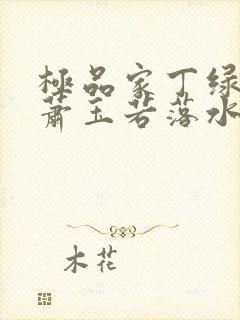 極品家丁绿
蕭玉若落水
木花